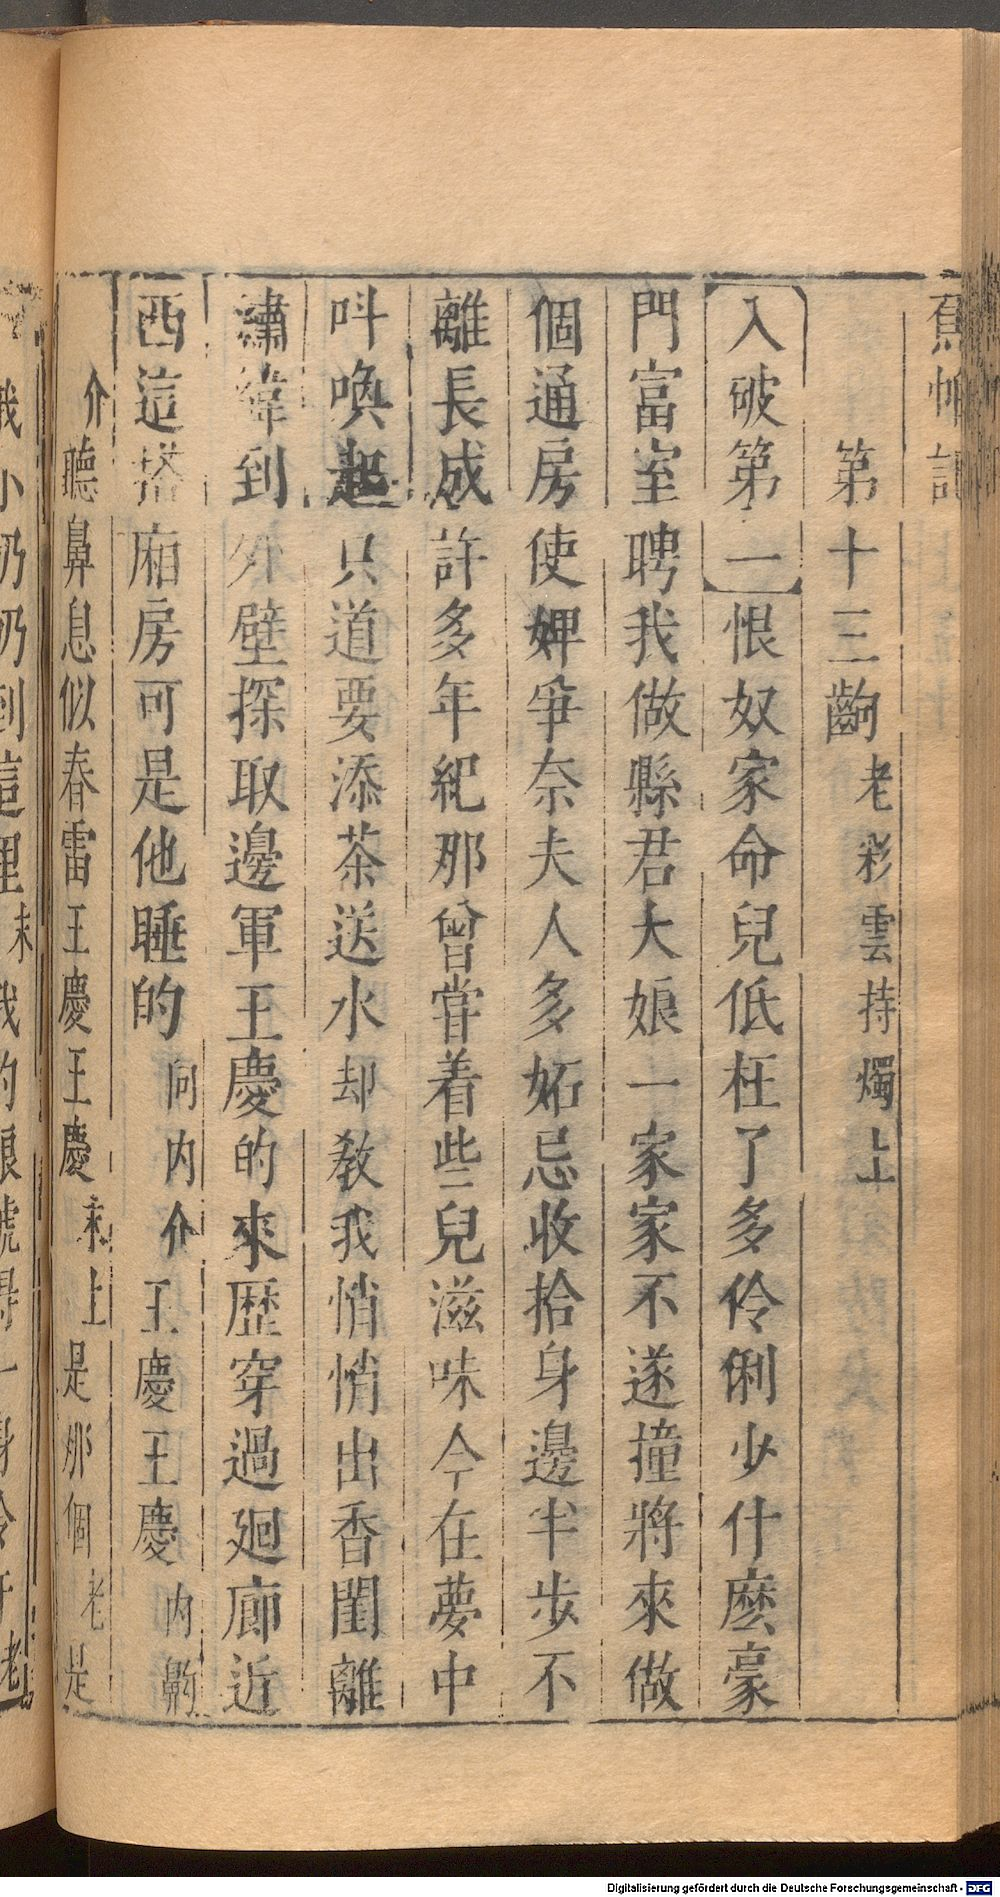 蕉帕記
第十三齣 老彩雲持燭上
入破第一 恨奴家命兒低枉了多伶俐少什麼豪
門富室聘我做縣君大娘一家家不遂撞將來做
個通房使婢爭奈夫人多妬忌收拾身邊半步不
離長成許多年紀那曾嘗着些兒滋味今在夢中
呌喚起只道要添茶送水却敎我悄悄出香閨離
繡幃到外壁探取邊軍王慶的來歷穿過廻廊近
西這搭廂房可是他睡的 向内介 王慶王慶 内齁
介 聽鼻息似春雷王慶王慶 末上 是那個 老 是
我小奶奶到這里 末 我的娘諕得一身冷汗 老
Digitalisierung gefördert durch die Deutsche Forschungsgemeinschaft - DFG